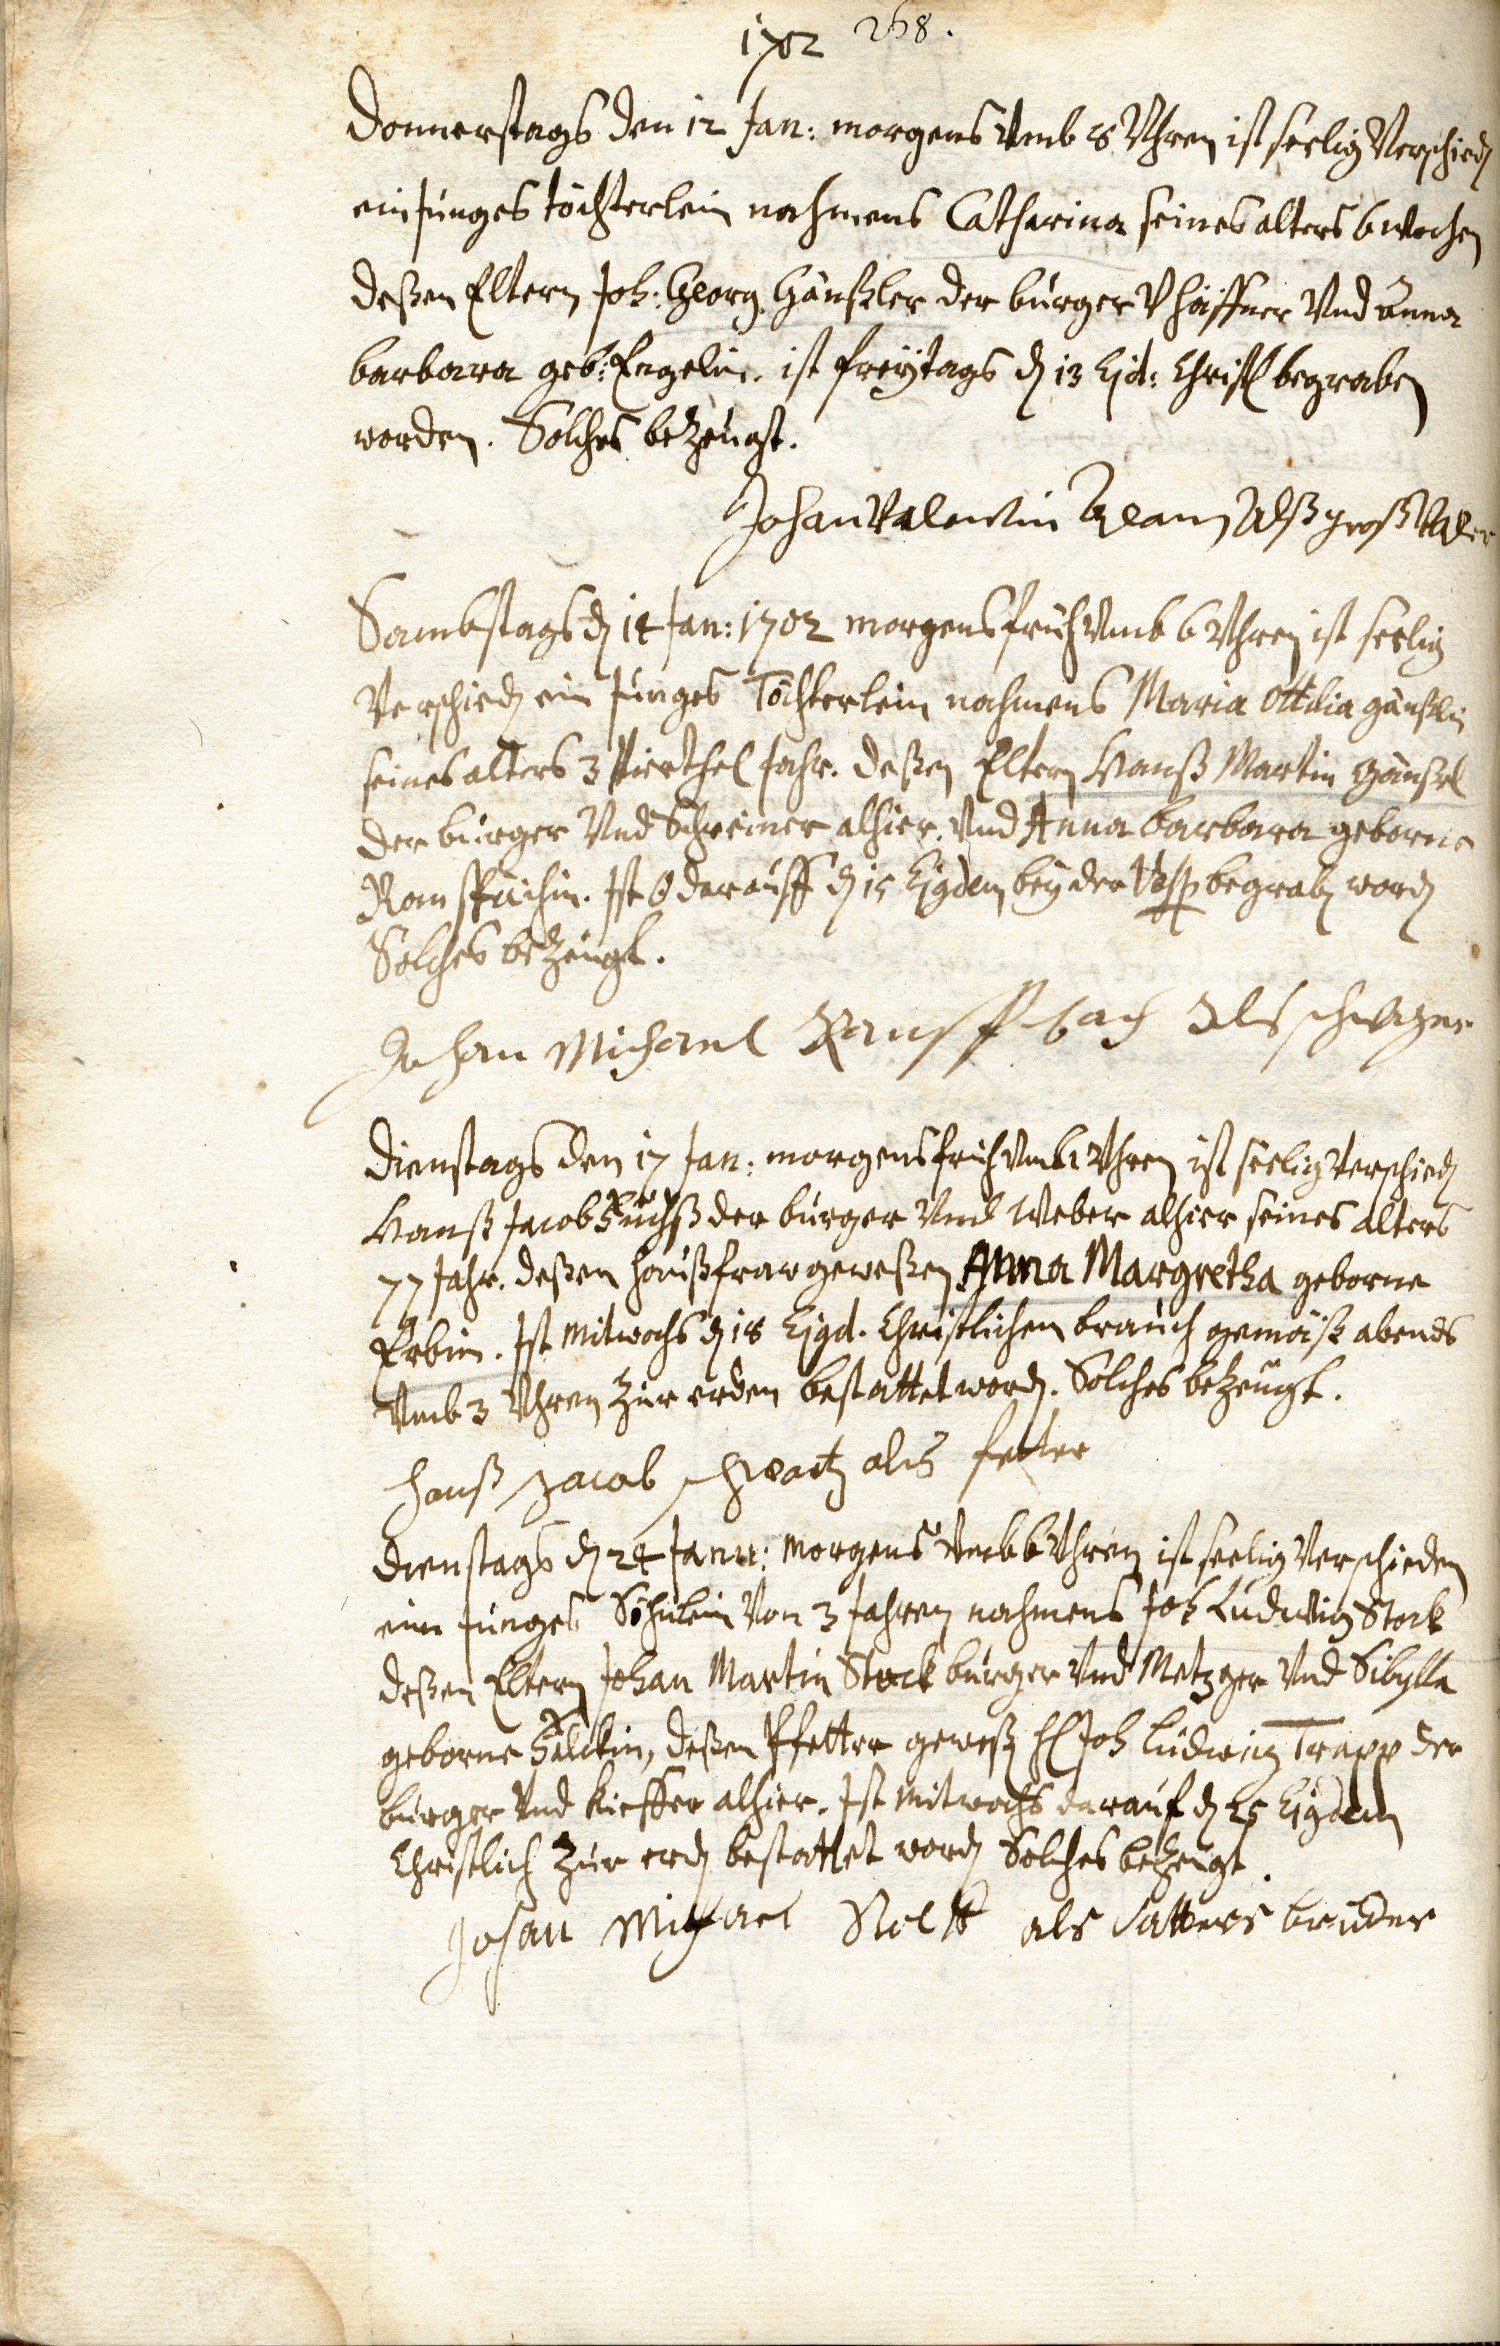 1702 268.
Donnerstags den 12 Jan: morgens Vmb 8 Vhren ist seelig Verschied
ein Junges töchterlein nahmens Catharina seines alters 6 wochen
deßen Eltern Joh: Georg Gänßler der burger V häffner Vnd Anna
barbara geb: Engelin. ist freÿtags d 13 Ejd: Christl begraben
worden. Solches bezeugt.
Johan Valentin alß groß Vater
Sambstags d 14 Jan: 1702 morgens früh Vmb 6 Vhren ist seelig
Verschied ein Junges Töchterlein nahmens Maria Ottilia gänßlin
seines alters 3 Vierthel Jahr. deßen Eltern Hanß Martin Gänßel
der burger Vnd Schreiner alhier. Vnd Anna barbara geborne
Ramspächin. Ist darauff d 15 Ejgdem beÿ der Vesp begrab word
Solches bezeugt.
Johan Michael als schwager
Dienstags den 17 Jan: morgens früh Vmb 1 Vhren ist seelig Verschied
Hanß Jacob der burger Vnd Weber alhier seines alters
77 Jahr. deßen haußfraw geweßen Anna Margretha geborne
Erbin. Ist Mitwochs d 18 Ejgd. Christlichem brauch gemäß abends
Vmb 3 Vhren zur erden bestattet word. Solches bezeugt.
hanß Jacob schwartz als fetter
Dienstags d 24 Janu: Morgens Vmb 6 Vhren ist seelig Verschieden
ein Junges Söhnlein Von 3 Jahren nahmens Joh Ludwig Stock
deßen Eltern Johan Martin Stock burger Vnd Metzger Vnd Sibylla
geborne deßen Pfetter geweß H Joh Ludwig Trapp der
burger Vnd Kieffer alhier. Ist Mitwochs darauf d 25 Ejgdem
Christlich zur erd bestattet word Solches bezeugt.
Johan Michael als Vatters bruder